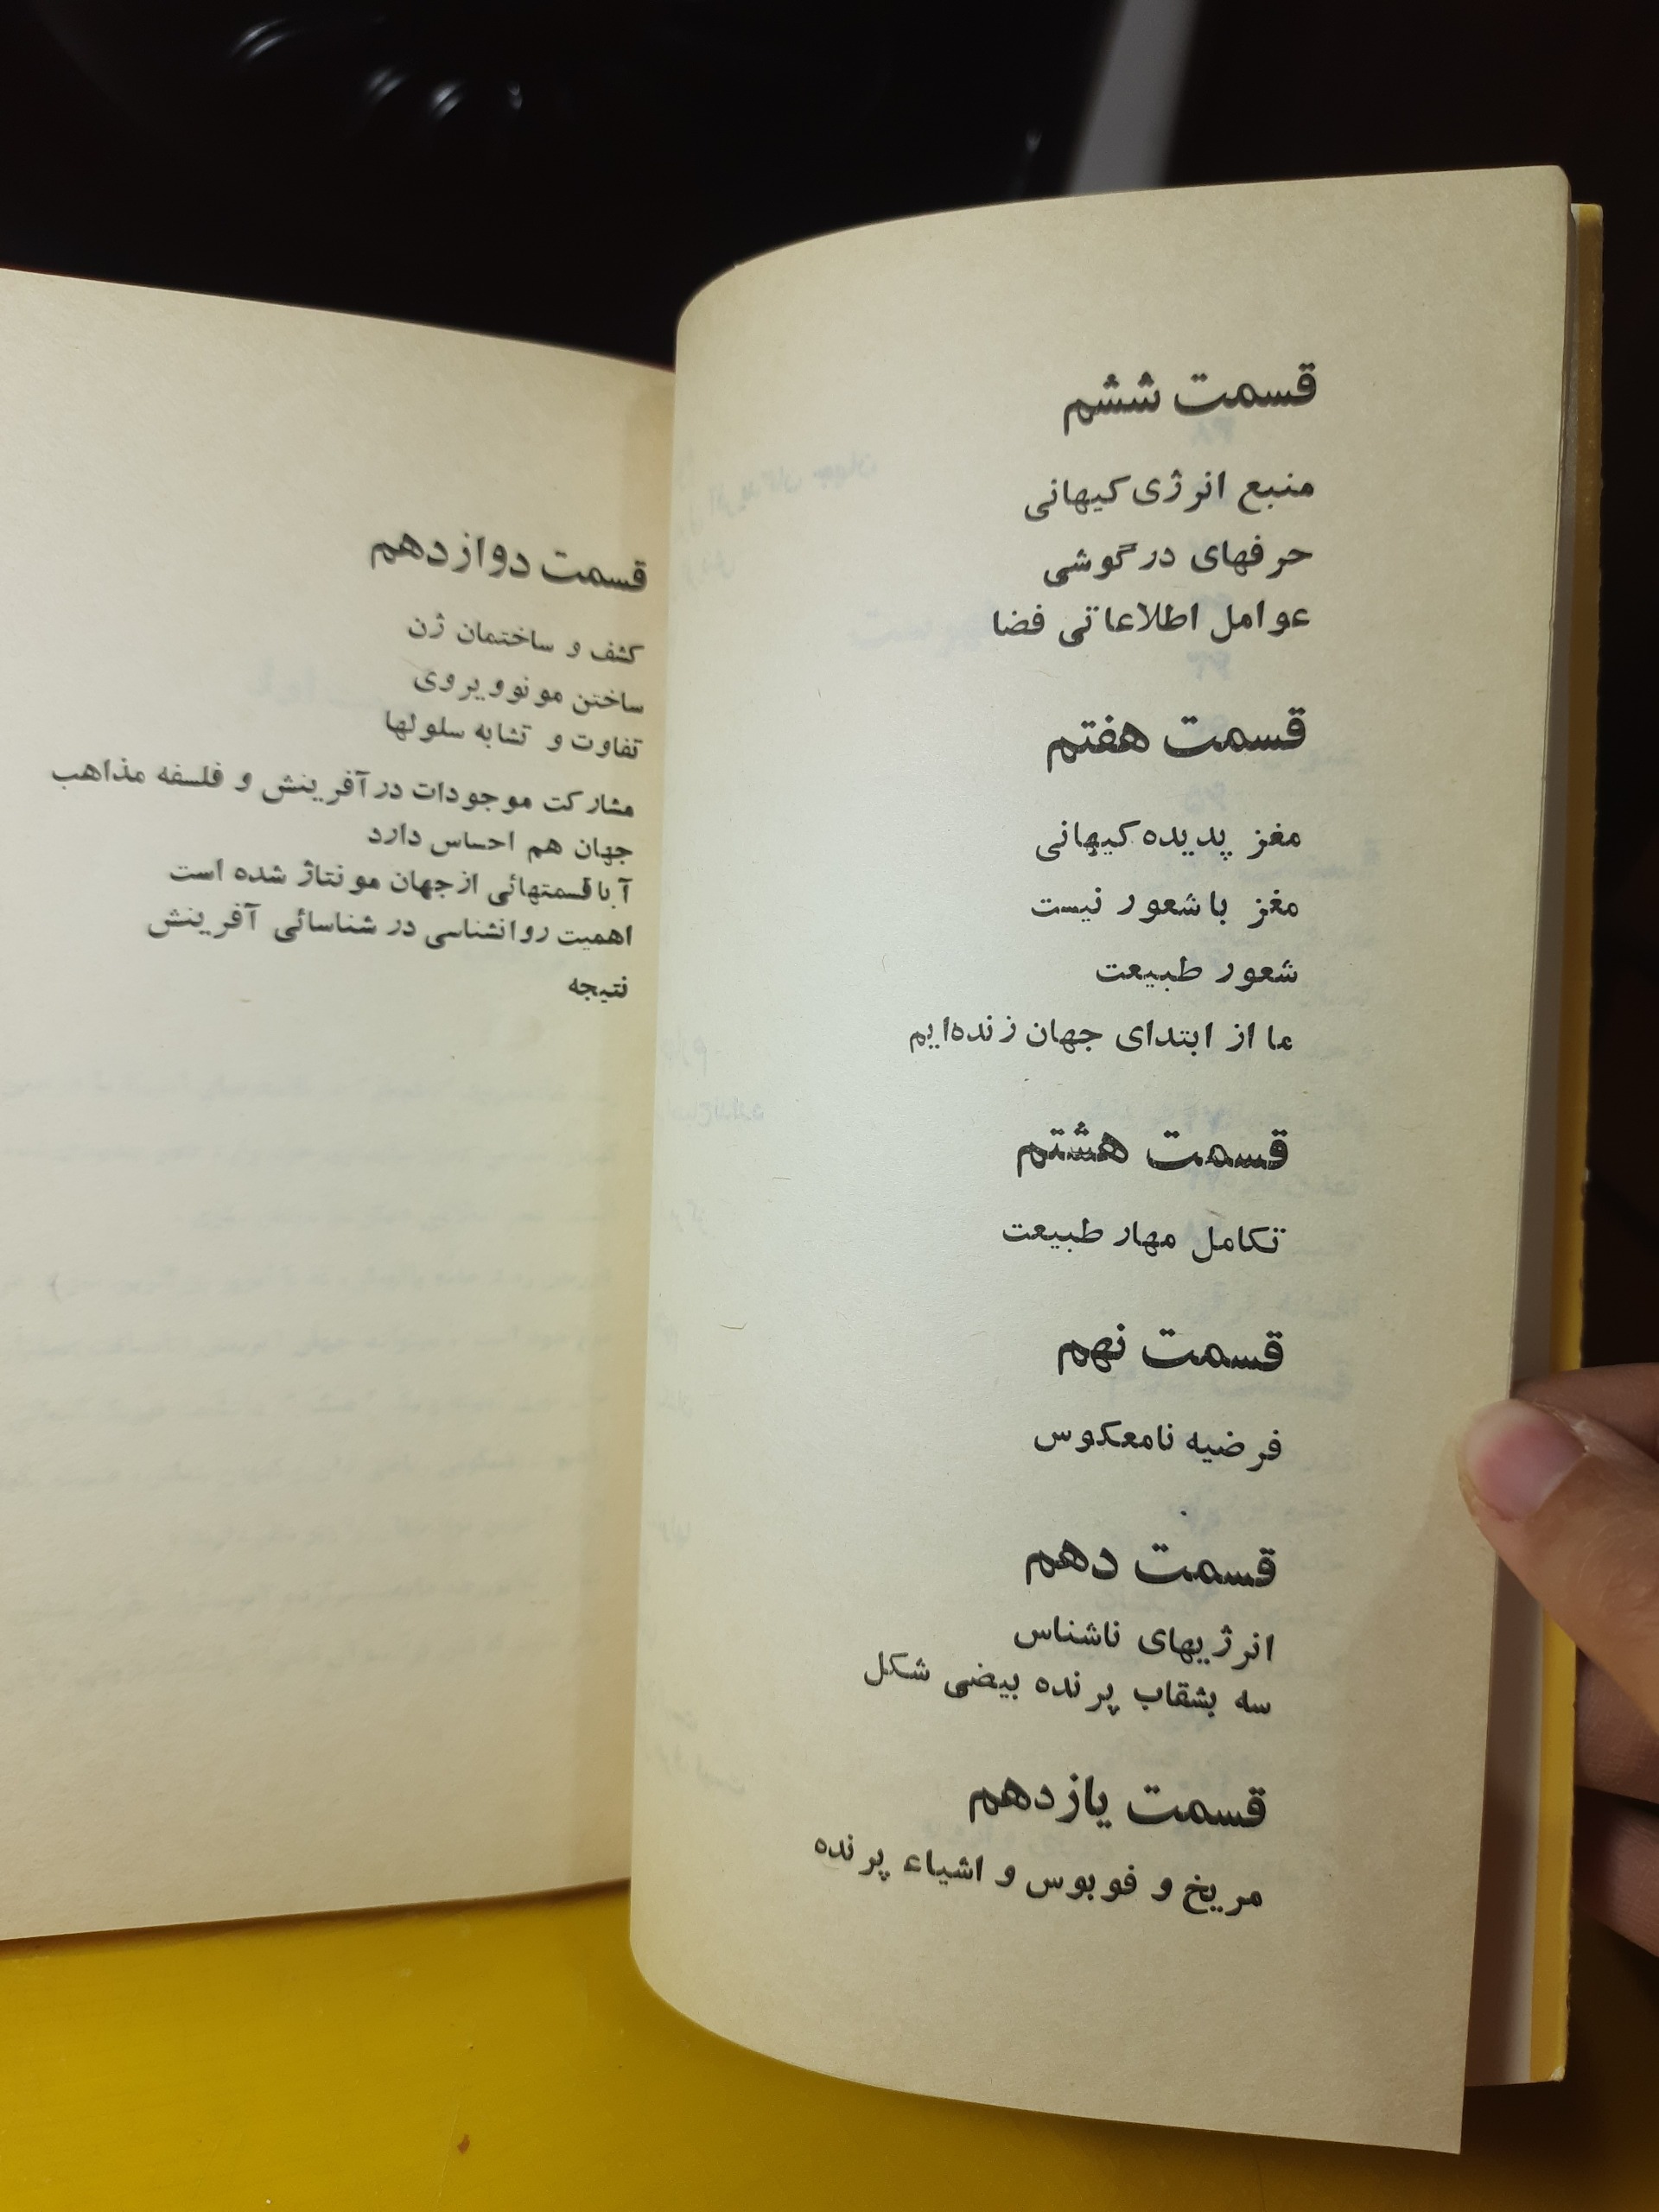 قسمت ششم
منبع انرژی کیهانی
حرفهای درگوشی
عوامل اطلاعاتی فضا
قسمت هفتم
مغز پدیده کیهانی
مغز باشعور نیست
شعور طبیعت
ما از ابتدای جهان زنده‌ایم
قسمت هشتم
تکامل مهار طبیعت
قسمت نهم
فرضیه نامعکوس
قسمت دهم
انرژیهای ناشناس
سه بشقاب پرنده بیضی شکل
قسمت یازدهم
مریخ و فوبوس و اشیاء پرنده
قسمت دوازدهم
کشف و ساختمان ژن
ساختن مونوویروی
تفاوت و تشابه سلولها
مشارکت موجودات درآفرینش و فلسفه مذاهب
جهان هم احساس دارد
آیا قسمتهائی ازجهان مونتاژ شده است
اهمیت روانشناسی در شناسائی آفرینش
نتیجه